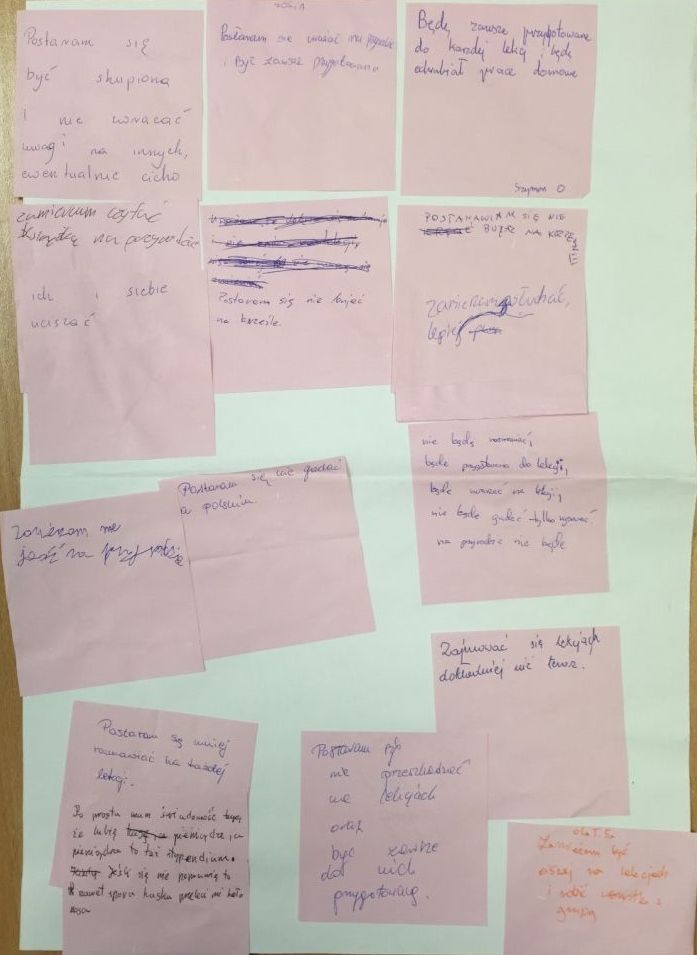 Postaram się
być skupiona
i nie zwracać
uwagi na innych,
ewentualnie cicho
ich i siebie
uciszać
ZOSIA
Postaram się uważać na przyrodzie
i być zawsze przygotowana
Będę zawsze przygotowane
do każdej lekcji i będę
odrabiał prace domowe
Szymon O
zamierzam czytać
książkę na przyrodzie
Postaram się nie bujać
na krześle.
POSTANAWIAM SIĘ NIE
BUJAĆ NA KRZEŚLE
zamierzam słuchać,
lepiej
nie będę rozmawiać,
będe przygotowana do lekcji,
będe uważać na lekcji,
nie będe gadać tylko uważać
na przyrodzie nie będę
Postaram się nie gadać
a polskim.
Zamierzam nie
jeść na przyrodzie
Zajmować się lekcjach
dokładniej niż teraz.
Postaram się mniej
rozmawiać na każdej
lekcji.
Po prostu mam świadomość tego,
że lubię pieniądze, a
pieniądze to też stypendium.
Jeśli się nie poprawię to
nawet spora kaska przeleci mi koło
nosa
Postaram się
nie przeszkadzać
na lekcjach
oraz
być zawsze
do nich
przygotowany.
Ola T. 5c
Zamierzam być
ciszej na lekcjach
i robić wszystko z
grupą